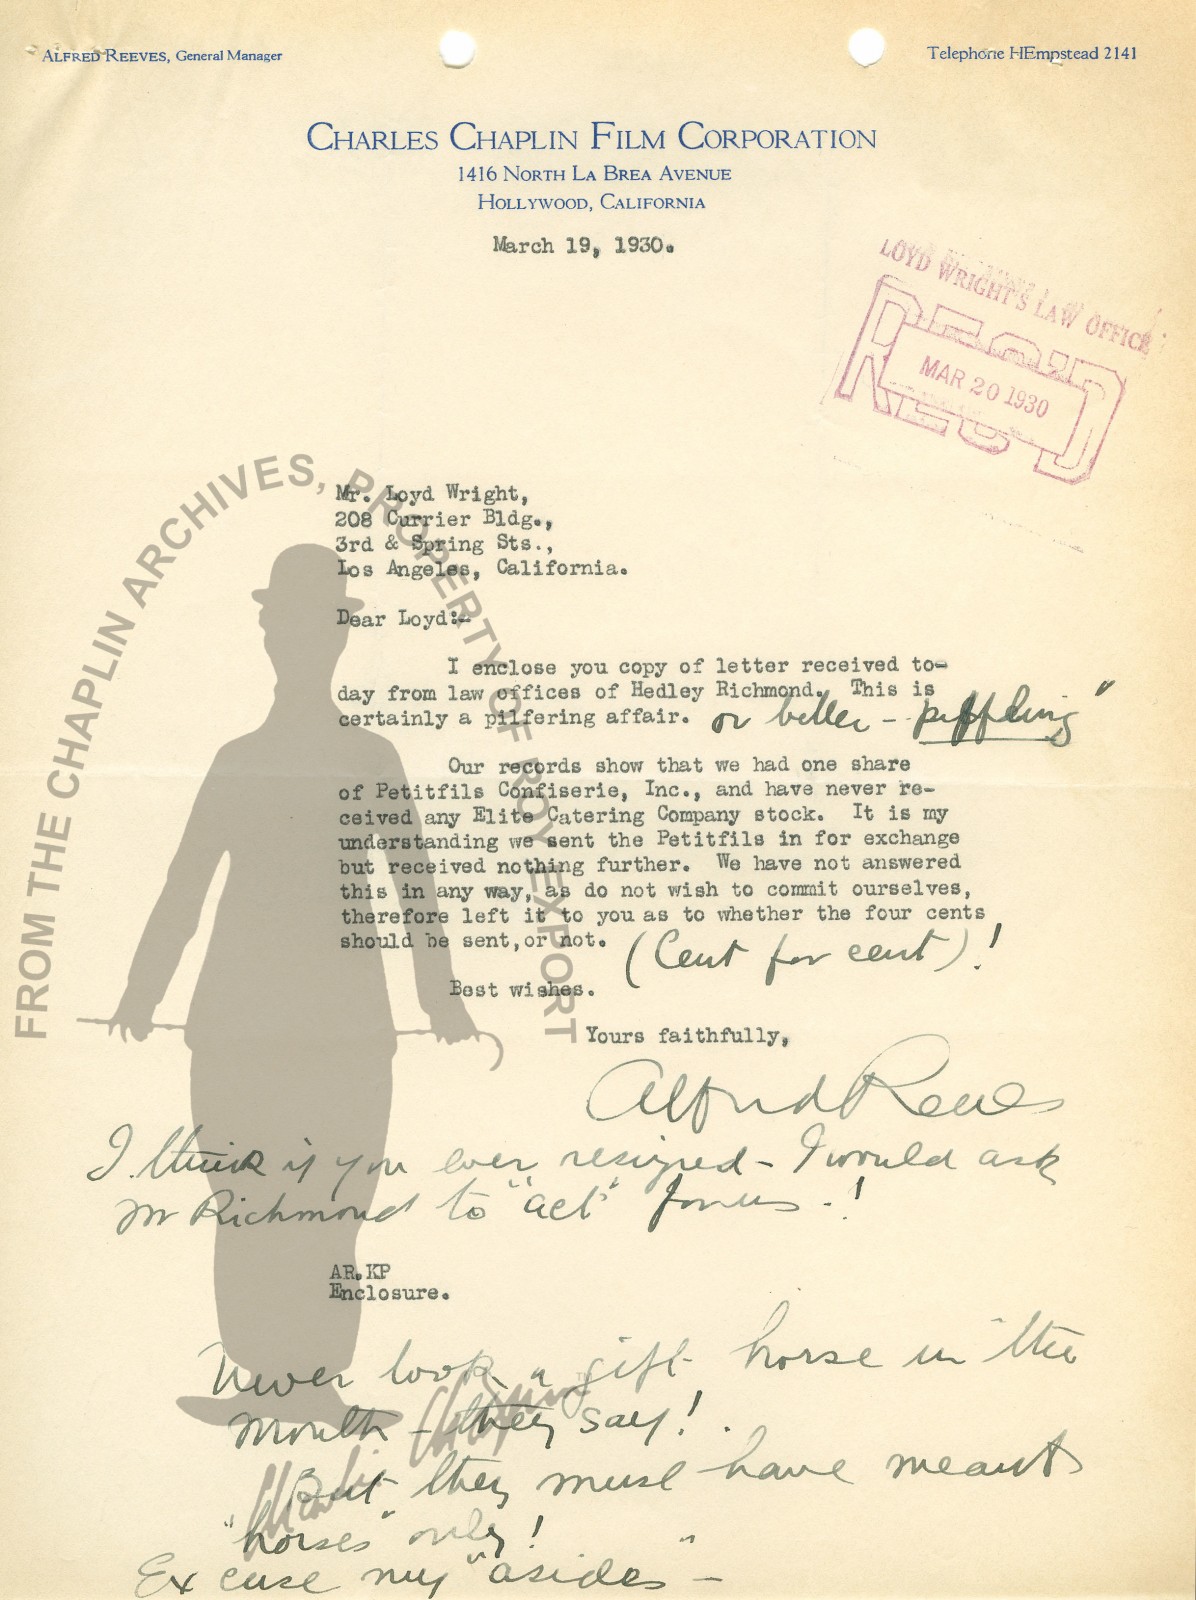 ALFRED REEVES, General Manager
Telephone HEmpstead 2141
CHARLES CHAPLIN FILM CORPORATION
1416 NORTH LA BREA AVENUE
HOLLYWOOD, CALIFORNIA
March 19, 1930.
LOYD WRIGHT'S LAW OFFICE
REC'D
MAR 20 1930
Mr. Loyd Wright,
208 Currier Bldg.,
3rd & Spring Sts.,
Los Angeles, California.
Dear Loyd:-
I enclose you copy of letter received to-
day from law offices of Hedley Richmond. This is
certainly a pilfering affair. or better - piffling"
Our records show that we had one share
of Petitfils Confiserie, Inc., and have never re-
ceived any Elite Catering Company stock. It is my
understanding we sent the Petitfils in for exchange
but received nothing further. We have not answered
this in any way, as do not wish to commit ourselves,
therefore left it to you as to whether the four cents
should be sent, or not. (Cent for cent)!
Best wishes.
Yours faithfully,
Alfred Reeves
I think if you ever resigned - I would ask
Mr Richmond to "act" for us - !
AR.KP
Enclosure.
Never look a gift horse in the
Mouth - they say!
But they must have meant
"horses" only!
Excuse my "asides" -
FROM THE CHAPLIN ARCHIVES, PROPERTY OF ROY EXPORT
Charlie Chaplin™